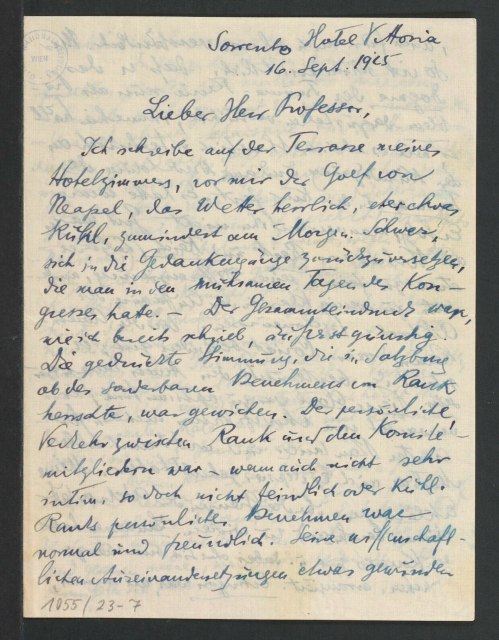 Sorrento Hotel Vittoria
16. Sept. 1925
Lieber Herr Professor,
Ich schreibe auf der Terrasse meines
Hotelzimmers, vor mir der Golf von
Neapel, das Wetter herrlich, eher etwas
kühl, zumindest am Morgen. Schwer,
sich in die Gedankengänge zurückzuversetzen,
die man in den mühsamen Tagen des Kon-
gresses hatte. – Der Gesammteindruck war,
wie ich bereits schrieb, äußerst günstig.
Die gedrückte Stimmung, die in Salzburg
ob des sonderbaren Benehmens von Rank
herrschte, war gewichen. Der persönliche
Verkehr zwischen Rank und den Komité-
mitgliedern war – wenn auch nicht sehr
intim, so doch nicht feindlich oder kühl.
Ranks persönliches Benehmen war
normal und freundlich. Seine wissenschaft-
lichen Auseinandersetzungen etwas gewunden
1055/23-7